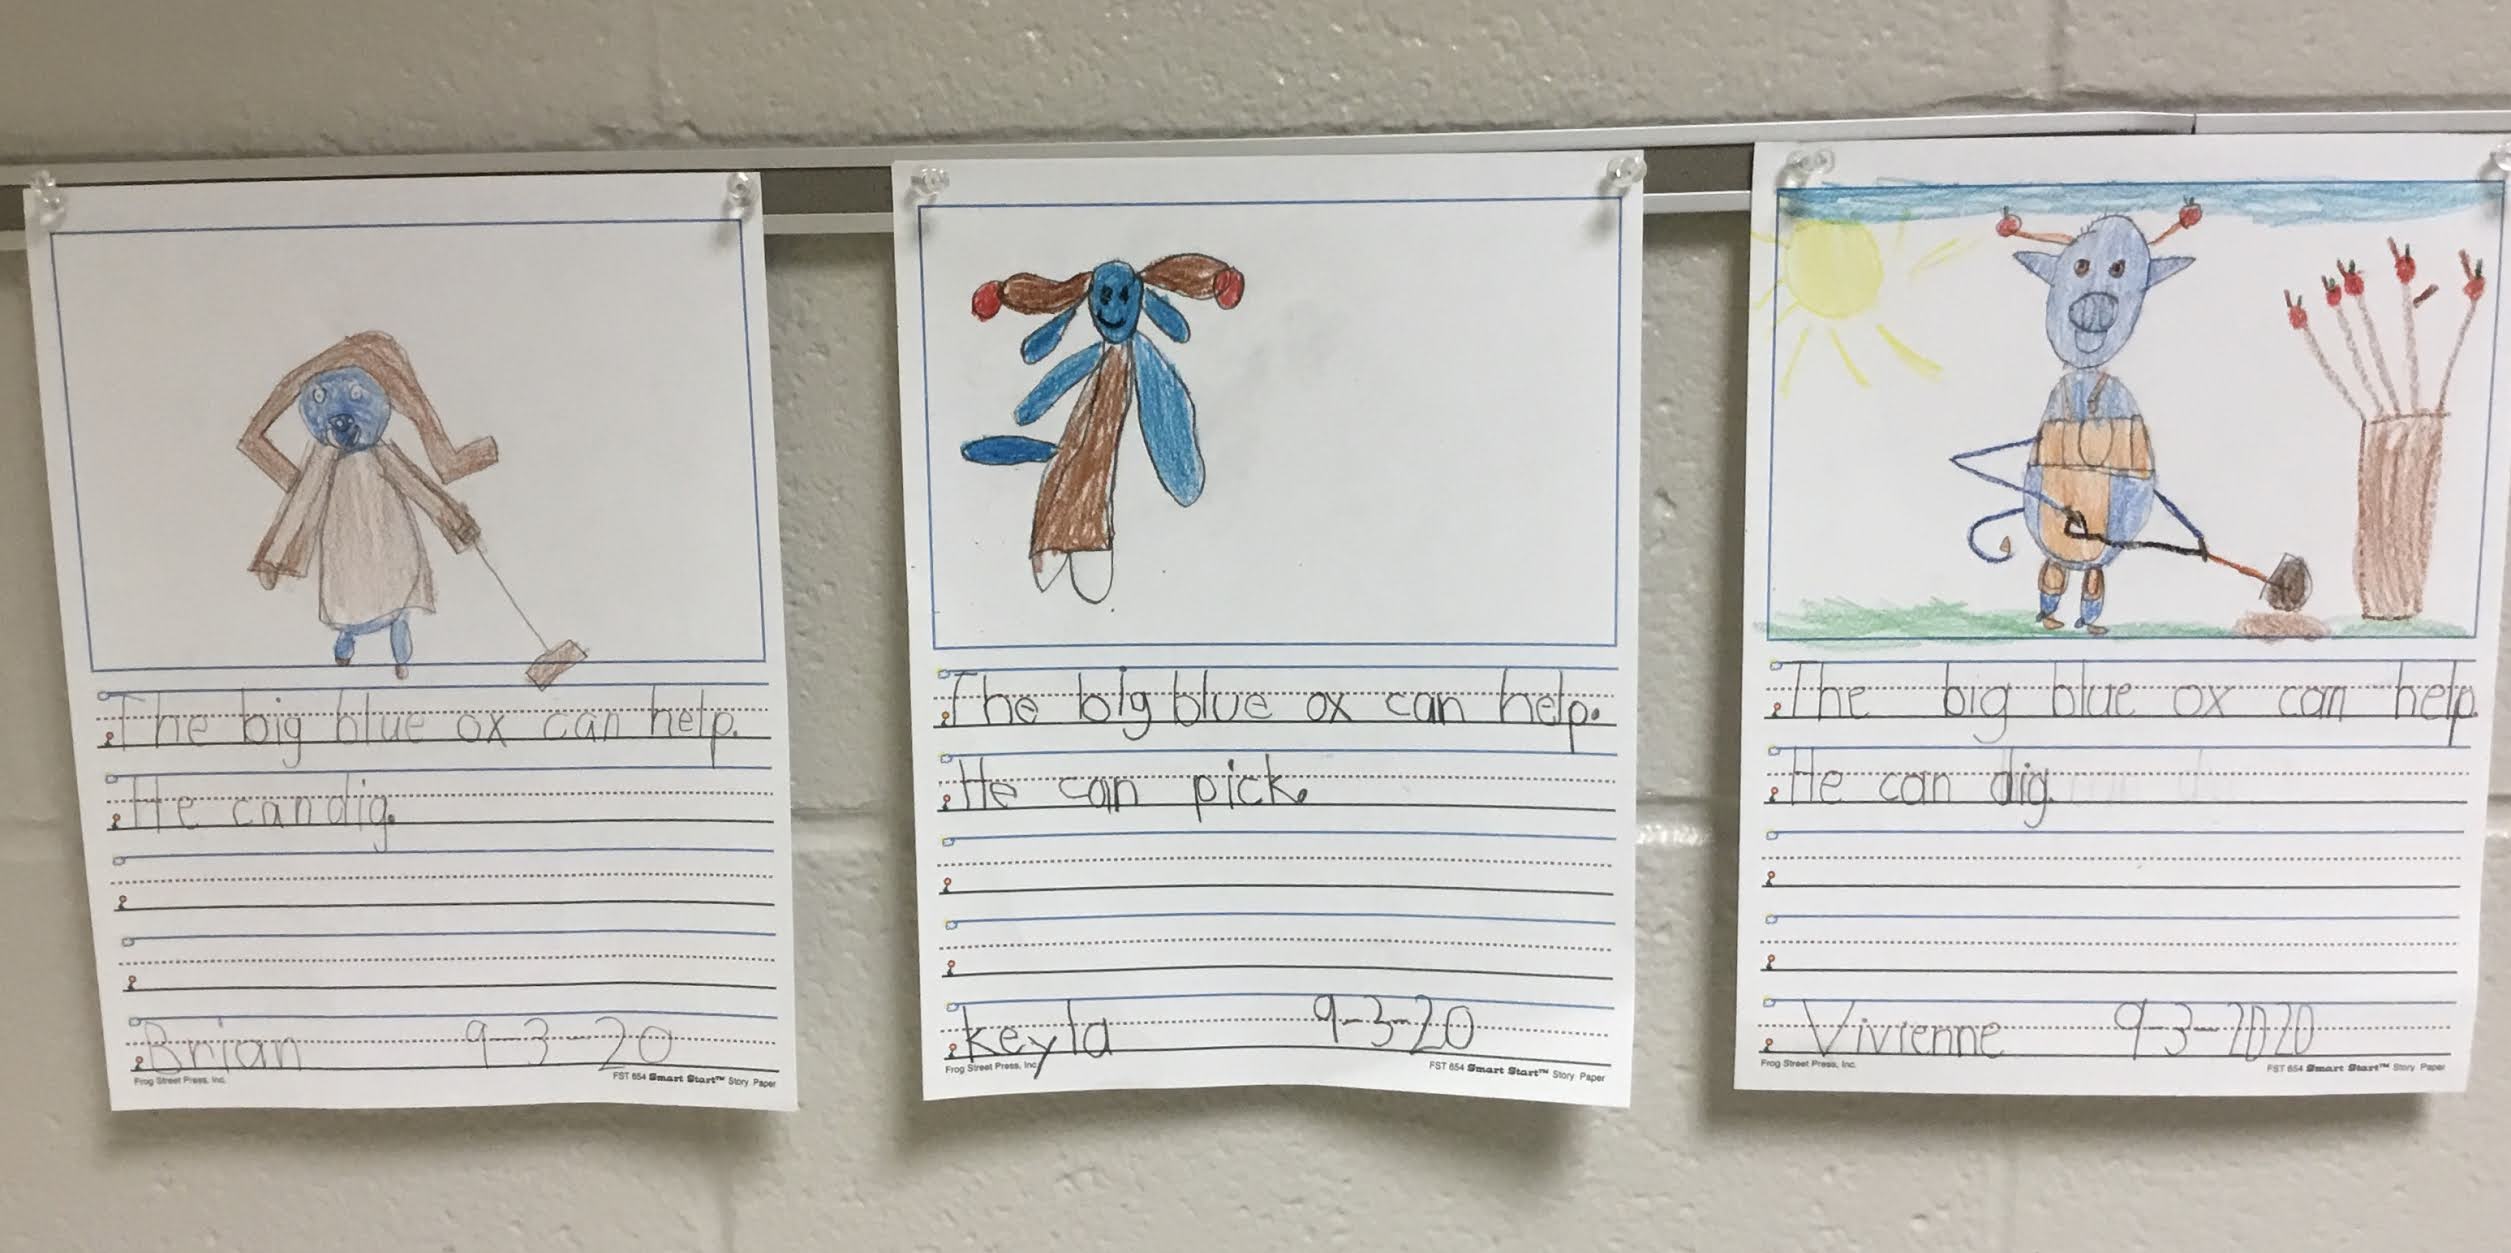 The big blue ox can help.
He can dig.
Brian 9-3-20
Frog Street Press, Inc.
FST 654 Smart Start™ Story Paper
The big blue ox can help.
He can pick.
keyla 9-3-20
Frog Street Press, Inc.
FST 654 Smart Start™ Story Paper
The big blue ox can help.
He can dig.
Vivienne 9-3-2020
Frog Street Press, Inc.
FST 654 Smart Start™ Story Paper